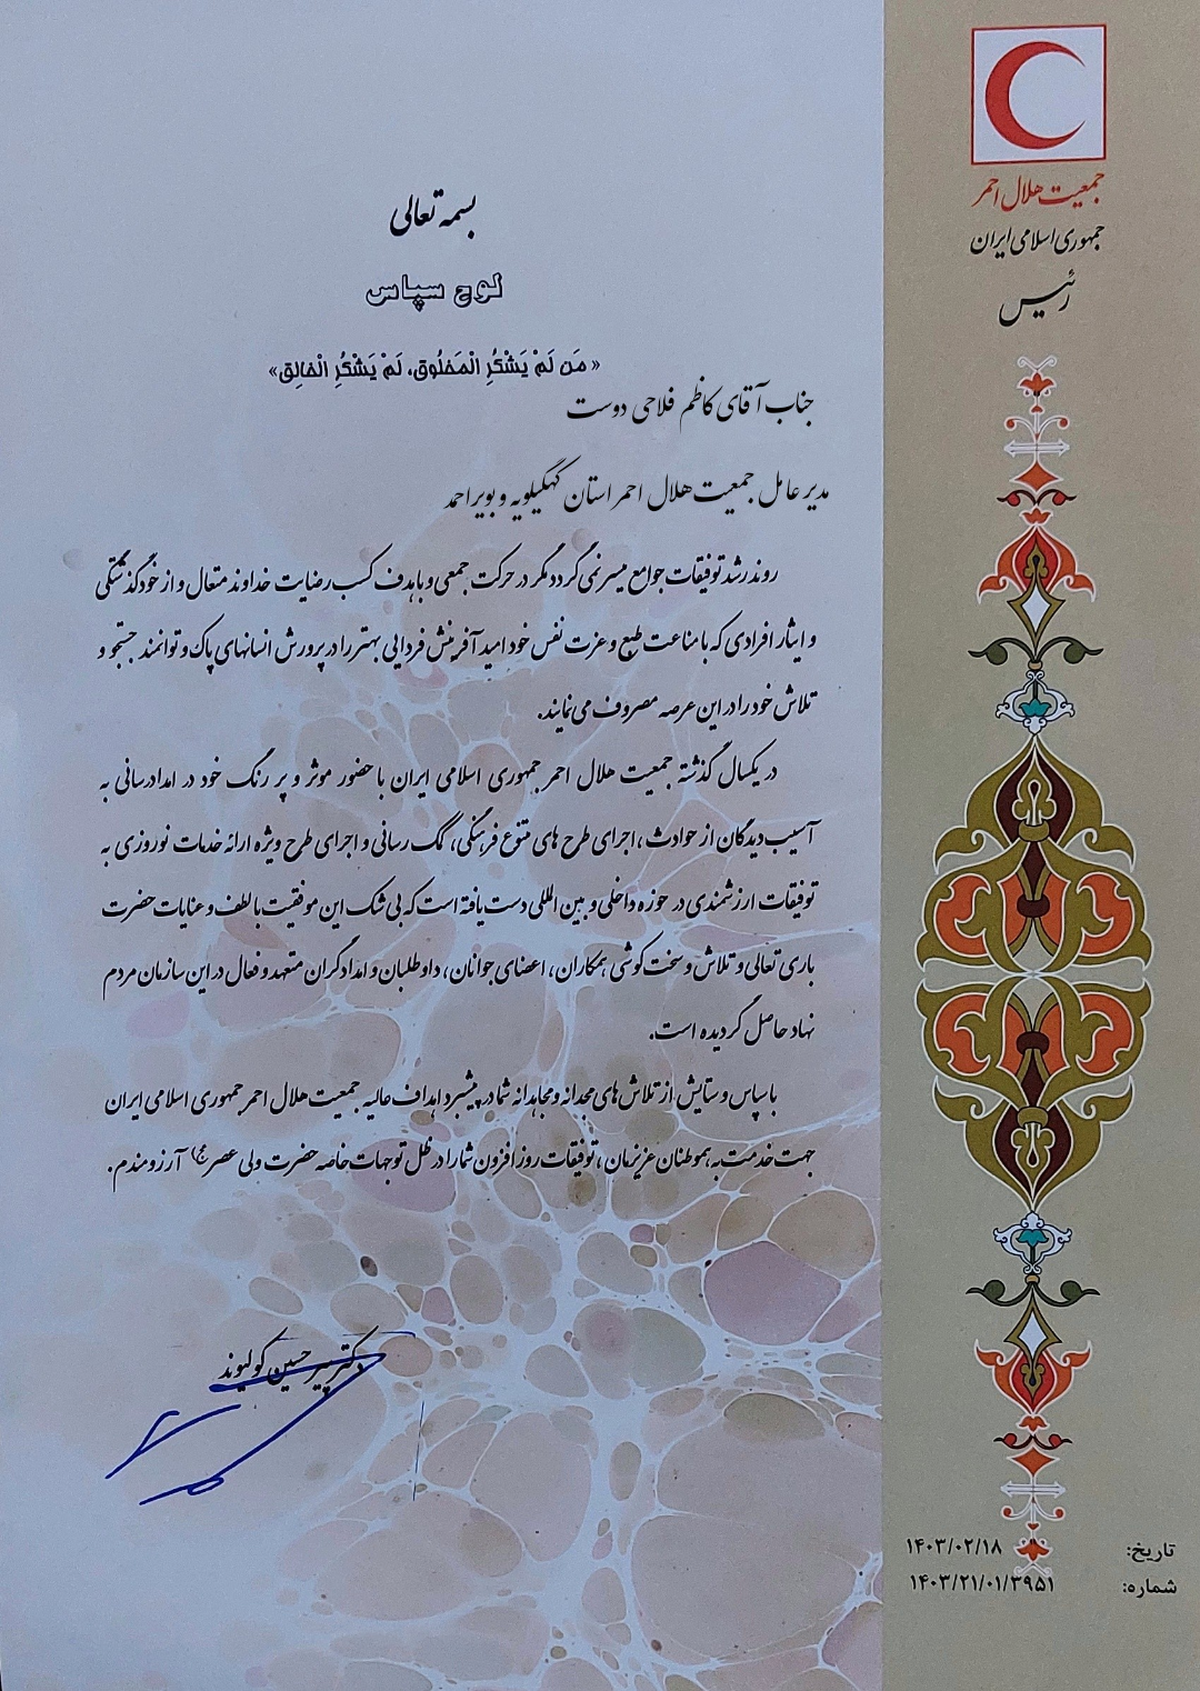 جمعیت هلال احمر
جمهوری اسلامی ایران
رئیس
بسمه تعالی
لوح سپاس
« مَن لَمْ يَشْكُرِ الْمَخلُوق، لَمْ يَشْكُرِ الْخالِق»
جناب آقای کاظم فلاحی دوست
مدیر عامل جمعیت هلال احمر استان کهگیلویه و بویراحمد
روند رشد توفیقات جوامع میسر نمی گردد مگر در حرکت جمعی و با هدف کسب رضایت خداوند متعال و از خودگذشتگی
و ایثار افرادی که با مناعت طبع و عزت نفس خود امید آفرینش فردایی بهتر را در پرورش انسانهای پاک و توانمند جستجو و
تلاش خود را در این عرصه مصروف می نمایند.
در یکسال گذشته جمعیت هلال احمر جمهوری اسلامی ایران با حضور موثر و پر رنگ خود در امدادرسانی به
آسیب دیدگان از حوادث ، اجرای طرح های متنوع فرهنگی، کمک رسانی و اجرای طرح ویژه ارائه خدمات نوروزی به
توفیقات ارزشمندی در حوزه داخلی و بین المللی دست یافته است که بی شک این موفقیت با لطف و عنایات حضرت
باری تعالی و تلاش و سخت کوشی همکاران ، اعضای جوانان ، داوطلبان و امدادگران متعهد و فعال در این سازمان مردم
نهاد حاصل گردیده است.
با سپاس و ستایش از تلاش های مجدانه و مجاهدانه شما در پیشبرد اهداف عالیه جمعیت هلال احمر جمهوری اسلامی ایران
جهت خدمت به هموطنان عزیزمان ، توفیقات روز افزون شما را در ظل توجهات خاصه حضرت ولی عصر (عج) آرزومندم.
دکتر پیر حسین کولیوند
تاریخ: ۱۴۰۳/۰۲/۱۸
شماره: ۱۴۰۳/۲۱/۰۱/۳۹۵۱